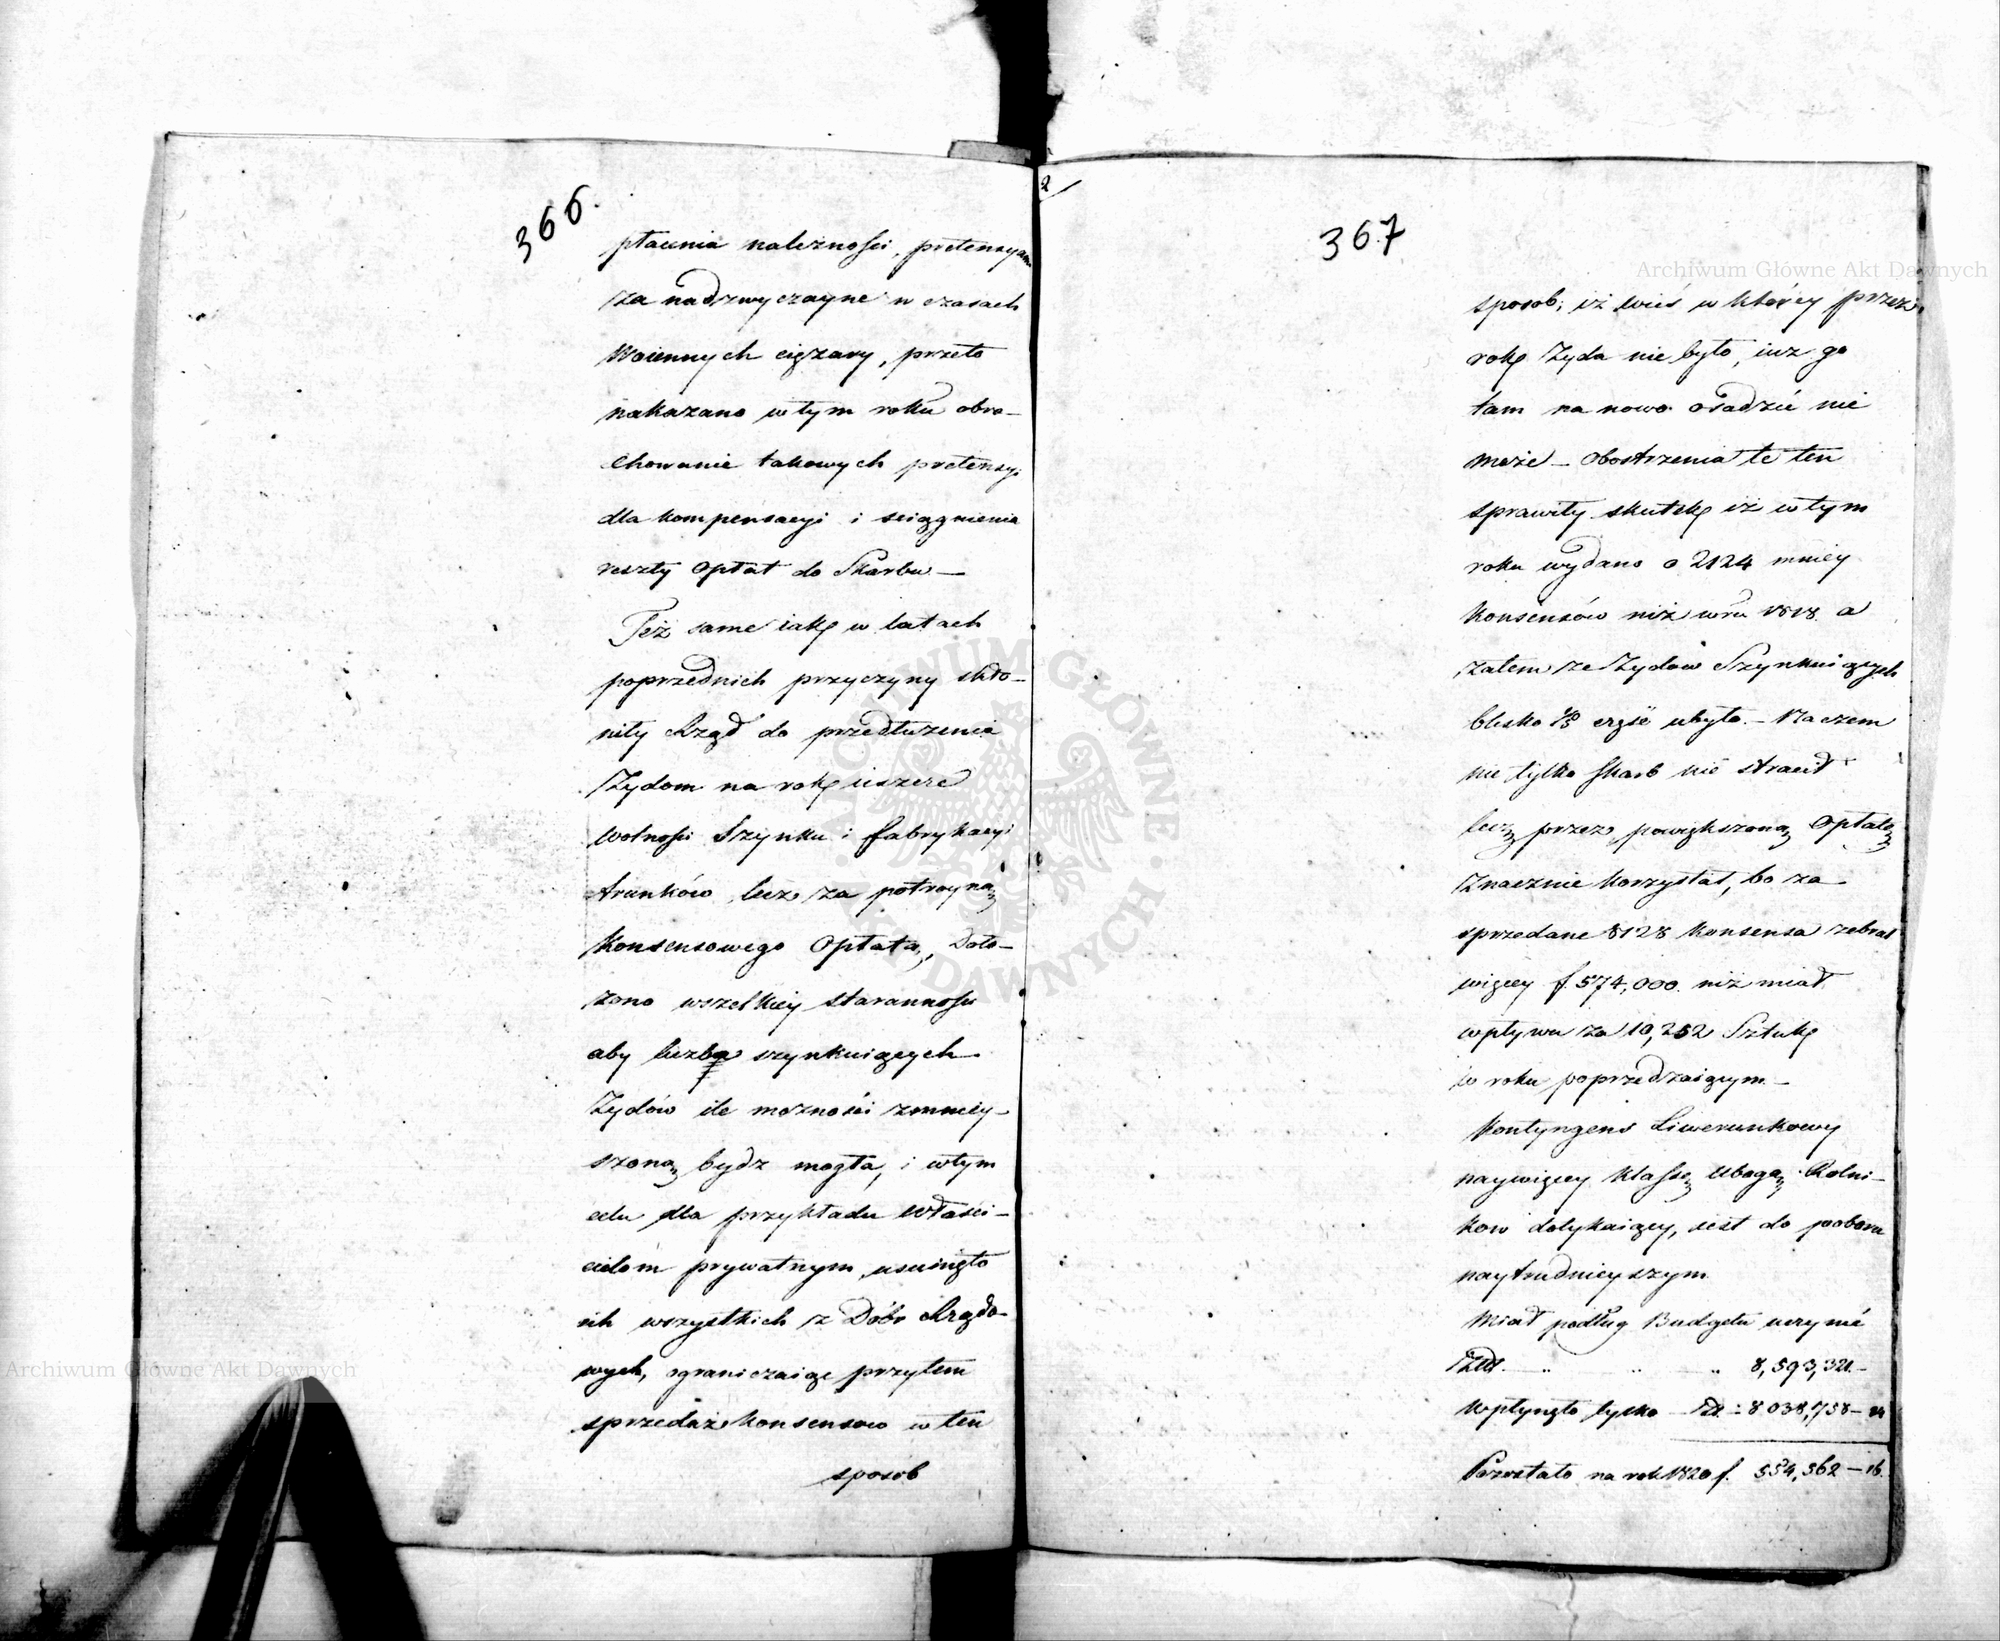 366.
płacenia należności, pretensyami
za nadzwyczayne w czasach
Woiennych ciężary, przeto
nakazano w tym roku obra–
chowanie takowych pretensyi
dla kompensacyi i sciągnienia
reszty Opłat do Skarbu —
Też same iak w latach
poprzednich przyczyny skło–
niły Rząd do przedłużenia
Żydom na rok ieszcze
wolności Szynku i fabrykacyi
trunków, lecz za potroyną
Konsensowego Opłatą, Doło–
żono wszelkiey staranności
aby liczba szynkuiących
Żydów ile możności zmniey–
szoną bydz mogła, i w tym
celu dla przykładu Właści–
cielom prywatnym, usunięto
ich wszystkich z Dóbr Rządo–
wych, ograniczaiąc przytem
sprzedaż Konsensow w ten
sposob
2
367
sposob; iż wieś w którey przez
rok Żyda nie było, iuz go
tam na nowo osadzić nie
może – Obostrzenia te ten
sprawiły skutek iż w tym
roku wydano o 2124 mniey
Konsensów niż w ru 1818. a
zatem ze Żydów Szynkuiących
blisko 1/5 część ubyło. – Na czem
nie tylko Skarb nic stracił
lecz przez powiększoną Opłatę
Znacznie korzystał, bo za
sprzedane 8128 Konsensa zebrał
więcey f 574,000. niż miał
wpływu za 10,252 Sztuk
w roku poprzedzaiącym –
Kontyngens Liwerunkowy
naywięcey klassę Ubogą Rolni–
kow dotykaiący, iest do poboru
naytrudnieyszym
Miał podług Budgetu uczynić
Złł. .. .. .. 8,593,321.–
Wpłynęło tylko – Zł. = 8 038,758 – 14
Pozostało na rok 1820 f. 554,562 – 16.
Archiwum Główne Akt Dawnych
Archiwum Główne Akt Dawnych
ARCHIWUM GŁÓWNE AKT DAWNYCH